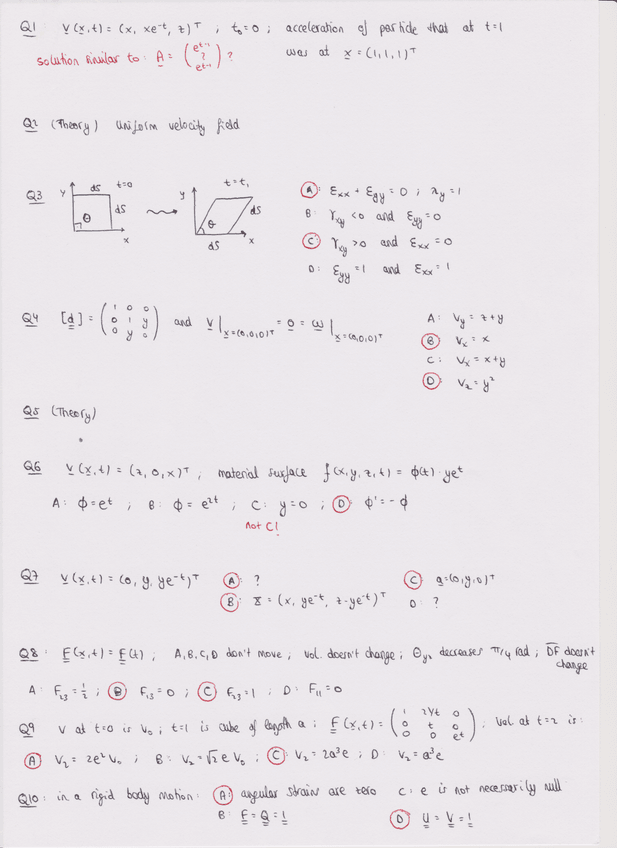 Q1 v(x,t) = (x, xe⁻ᵗ, z)ᵀ ; t₀=0 ; acceleration of particle that at t=1
solution similar to: A = (eᵗ⁻¹ ? eᵗ⁻¹) ? was at x=(1,1,1)ᵀ
Q2 (Theory) Uniform velocity field
Q3 y dS t=0 dS θ x
y t=t₁ dS θ dS x
A: Exx + Eyy = 0 ; λy = 1
B: γxy <0 and Eyy = 0
C: γxy >0 and Exx = 0
D: Eyy = 1 and Exx = 1
Q4 [d] = (1 0 0 0 1 y 0 y 0) and v|x=(0,0,0)ᵀ = 0 = ω|x=(0,0,0)ᵀ
A: Vy = z+y
B Vx = x
C: Vx = x+y
D: Vz = y²
Q5 (Theory)
Q6 v(x,t) = (z, 0, x)ᵀ ; material surface f(x,y,z,t) = ϕ(t)·yeᵗ
A: ϕ=eᵗ ; B: ϕ = e²ᵗ ; C: y=0 ; D: ϕ' = -ϕ
not C!
Q7 v(x,t) = (0, y, ye⁻ᵗ)ᵀ A: ? C: a=(0,y,0)ᵀ
B: X = (x, ye⁻ᵗ, z-ye⁻ᵗ)ᵀ D: ?
Q8: F(x,t) = F(t) ; A,B,C,D don't move ; vol. doesn't change ; decreases π/4 rad ; DF doesn't change
A: F₂₃=½ ; B F₁₃=0 ; C F₂₃=1 ; D: F₁₁=0
Q9 V at t=0 is V₀ ; t=1 is cube of length a ; F(x,t) = (1 0 0 t 0 0 0 eᵗ) ; Vol at t=2 is:
A V₂ = 2e²V₀ ; B: V₂=√2 e V₀ ; C: V₂ = 2a³e ; D: V₂=a³e
Q10: in a rigid body motion: A: angular strains are zero C: e is not necessarily null
B: F=Q=1 D U=V=1